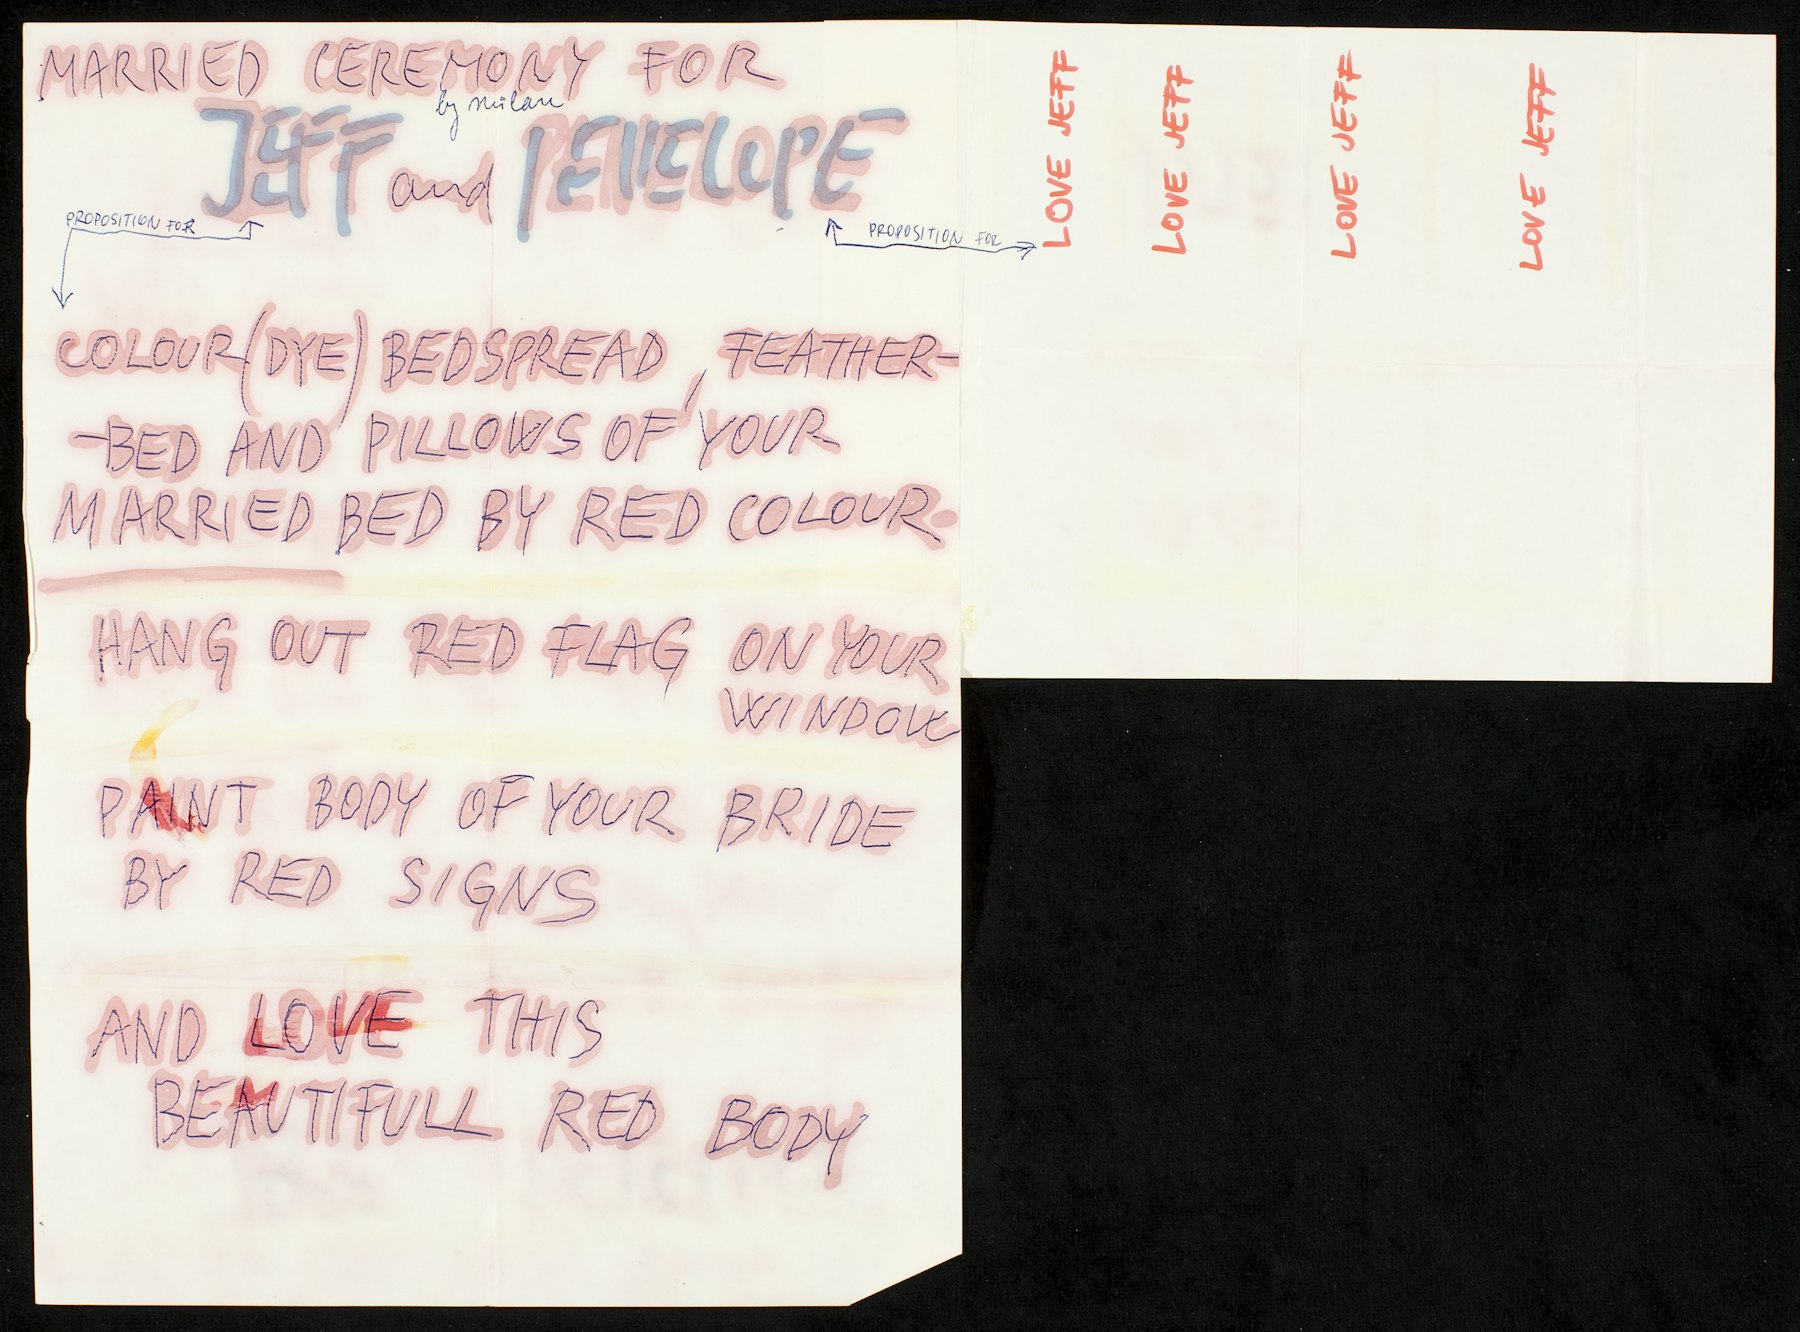 MARRIED CEREMONY FOR
by milan
JEFF and PENELOPE
PROPOSITION FOR
PROPOSITION FOR
COLOUR (DYE) BEDSPREAD, FEATHER-
-BED AND PILLOWS OF YOUR
MARRIED BED BY RED COLOUR.
HANG OUT RED FLAG ON YOUR
WINDOW
PAINT BODY OF YOUR BRIDE
BY RED SIGNS
AND LOVE THIS
BEAUTIFULL RED BODY
LOVE JEFF
LOVE JEFF
LOVE JEFF
LOVE JEFF